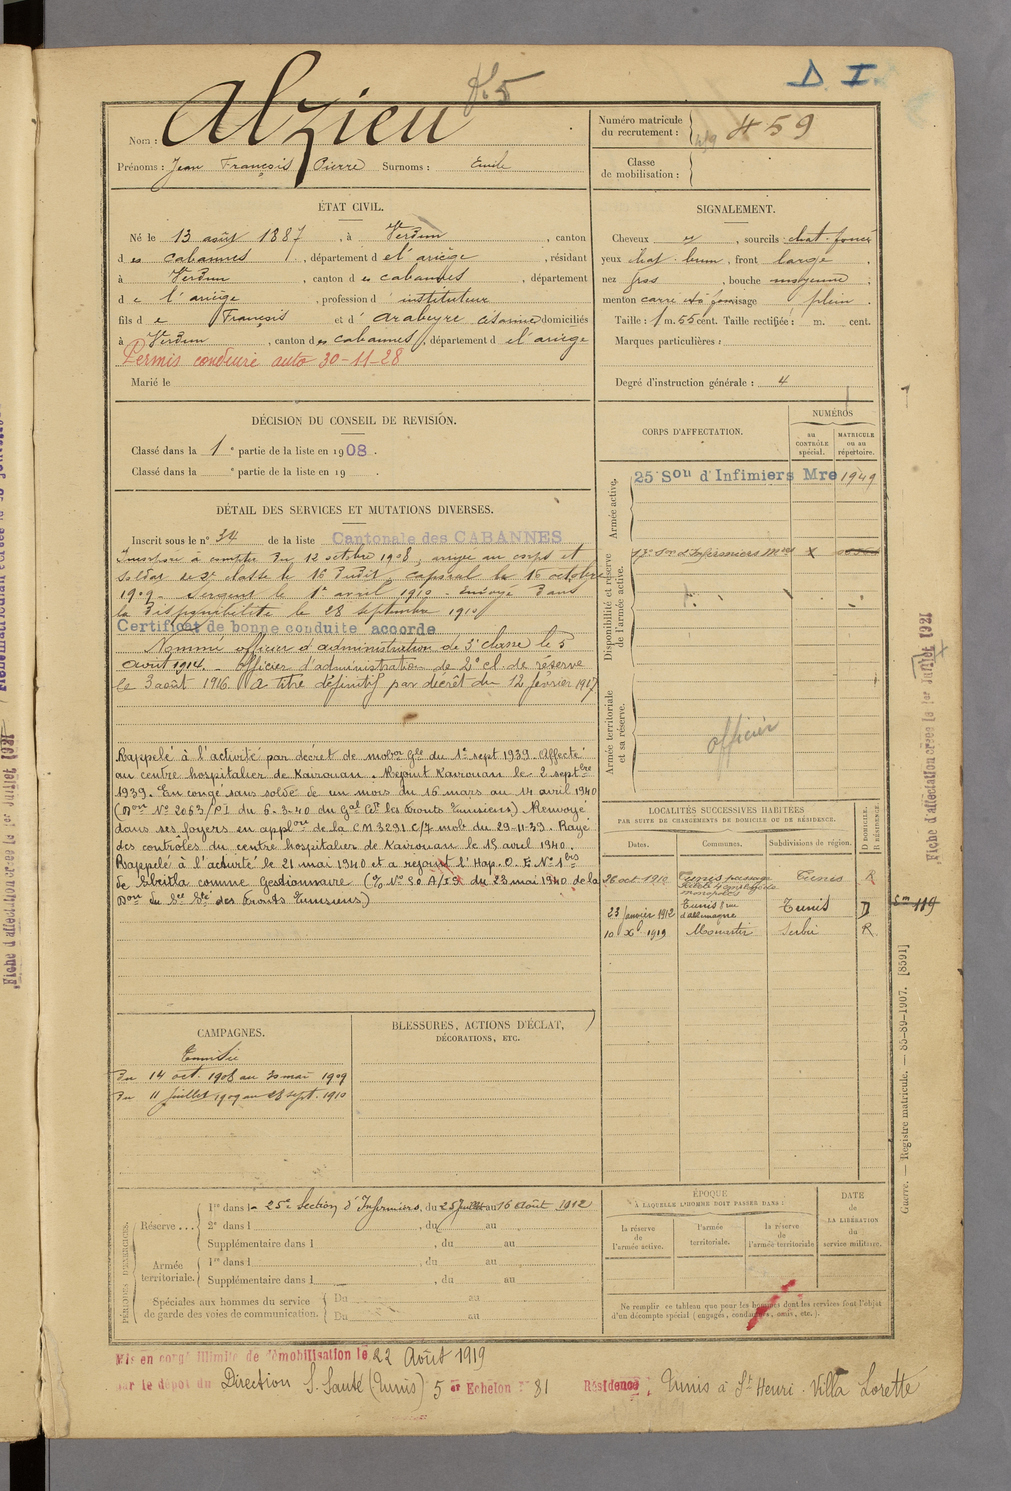 K5
D. I.
Nom : Alzieu
Prénoms : Jean François Pierre Surnoms : Emile
Numéro matricule du recrutement : 459
Classe de mobilisation :
ÉTAT CIVIL.
Né le 13 août 1887, à Verdun, canton
des Cabannes, département de l'ariège, résidant
à Verdun, canton des Cabannes, département
de l'ariège, profession d' instituteur
fils de François et d' Arabeyre Césarine domiciliés
à Verdun, canton des Cabannes, département de l'ariège
Permis conduire auto 30-11-28
Marié le
SIGNALEMENT.
Cheveux et, sourcils chat. foncé
yeux chat. brun, front large,
nez gros, bouche moyenne;
menton carré visage plein.
Taille : 1 m. 55 cent. Taille rectifiée : m. cent.
Marques particulières :
Degré d'instruction générale : 4
DÉCISION DU CONSEIL DE REVISION.
Classé dans la 1e partie de la liste en 1908.
Classé dans la e partie de la liste en 19 .
DÉTAIL DES SERVICES ET MUTATIONS DIVERSES.
Inscrit sous le n° 34 de la liste Cantonale des CABANNES
Incorporé à compter du 12 octobre 1908, arrivé au corps et
soldat de 2e classe le 16 dudit, caporal le 16 octobre
1909. Sergent le 1er avril 1910. Envoyé dans
la disponibilité le 28 septembre 1910
Certificat de bonne conduite accorde
Nommé officier d'administration de 3e classe le 5
août 1914. Officier d'administration de 2e cl. de réserve
le 3 août 1916. à titre définitif par décrêt du 12 février 1917
Rappelé à l'activité par décret de mobon Gle du 1er sept 1939. Affecté
au centre hospitalier de Kairouan. Rejoint Kairouan le 2 septbre
1939. En congé sans solde de un mois du 16 mars au 14 avril 1940
(Don No 2063/PI du 6-3-40 du Gal Ct les Fronts Tunisiens) Renvoyé
dans ses foyers en applon de la CM 3291 C/7 mob du 29-11-39. Rayé
des contrôles du centre hospitalier de Kairouan le 15 avril 1940.
Rappelé à l'activité le 21 mai 1940 et a rejoint l'Hop. O. E. No 1 bis
de Sbeitla comme Gestionnaire du 23 mai 1940 de la
Don du Sce Sté des Fronts Tunisiens)
CORPS D'AFFECTATION.
NUMÉROS
au CONTRÔLE spécial.
MATRICULE ou au répertoire.
Armée active.
25 Son d'Infimiers Mre 1949
Disponibilité et réserve de l'armée active.
17e Son d'Infirmiers Mres X
Armée territoriale et sa réserve.
officier
LOCALITÉS SUCCESSIVES HABITÉES
PAR SUITE DE CHANGEMENTS DE DOMICILE OU DE RÉSIDENCE.
Dates. Communes. Subdivisions de région. D DOMICILE. R RÉSIDENCE
26 oct 1910 Tunis passage Tunis R
23 janvier 1912 Tunis 8 rue d'allemagne Tunis D
10 Xe 1919 Monastir R.
CAMPAGNES.
Tunisie
Du 14 oct. 1908 au 30 mai 1909
Du 11 juillet 1909 au 28 sept. 1910
BLESSURES, ACTIONS D'ÉCLAT,
DÉCORATIONS, ETC.
PÉRIODES D'EXERCICES.
Réserve ... 1re dans la 25e Section d'Infirmiers, du 25 Juillet au 16 Août 1912
2e dans l , du au
Supplémentaire dans l , du au
Armée territoriale. 1re dans l , du au
Supplémentaire dans l , du au
Spéciales aux hommes du service de garde des voies de communication. Du au
Du au
ÉPOQUE
À LAQUELLE L'HOMME DOIT PASSER DANS :
la réserve de l'armée active.
l'armée territoriale.
la réserve de l'armée territoriale
DATE de LA LIBÉRATION du service militaire.
Ne remplir ce tableau que pour les hommes dont les services font l'objet
d'un décompte spécial (engagés, condamnés, omis, etc.).
Mis en congé illimité de démobilisation le 22 Août 1919
par le dépôt du Direction S. Santé (Tunis) 5 er Echelon N° 81 Résidence : Tunis à St Henri. Villa Lorette
Fiche d'affectation créée le 1er Juillet 1921
Sm 119
Guerre. — Registre matricule. — 85-89-1907. [8591]